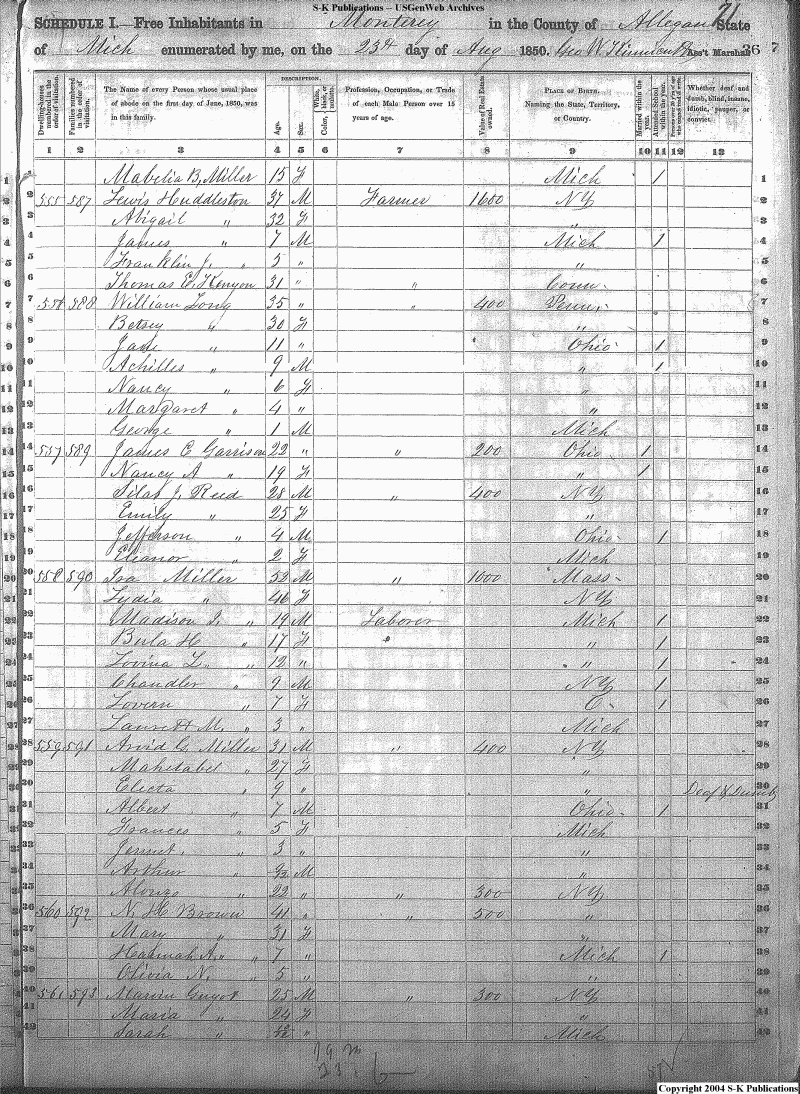 S-K Publications – USGenWeb Archives
71
SCHEDULE I.—Free Inhabitants in Monterey in the County of Allegan State
of Mich enumerated by me, on the 23d day of Aug 1850. Geo W. Ass't Marshal. 36 7
Dwelling-houses numbered in the order of visitation. Families numbered in the order of visitation. The Name of every Person whose usual place of abode on the first day of June, 1850, was in this family. DESCRIPTION. Age. Sex. Color, White, black, or mulatto. Profession, Occupation, or Trade of each Male Person over 15 years of age. Value of Real Estate owned. PLACE OF BIRTH. Naming the State, Territory, or Country. Married within the year. Attended School within the year. Whether deaf and dumb, blind, insane, idiotic, pauper, or convict.
1 2 3 4 5 6 7 8 9 10 11 12 13
1 Mabelia B. Miller 15 F Mich 1 1
2 555 587 Lewis Huddleston 37 M Farmer 1600 NY 2
3 Abigail " 32 F " 3
4 James " 7 M Mich 1 4
5 Franklin J. " 5 " " 5
6 Thomas E. Kenyon 31 " " Conn. 6
7 556 588 William Long 35 " " 400 Penn. 7
8 Betsey " 30 F " 8
9 Jane " 11 " Ohio 1 9
10 Achilles " 9 M " 1 10
11 Nancy " 6 F " 11
12 Margaret " 4 " " 12
13 George " 1 M Mich 13
14 557 589 James C Garrison 22 " " 200 Ohio 1 14
15 Nancy A " 19 F " 1 15
16 Silas J. Reed 28 M " 400 NY 16
17 Emily " 25 F " 17
18 Jefferson " 4 M Ohio 1 18
19 Eleanor " 2 F Mich 19
20 558 590 Isa Miller 52 M " 1000 Mass 20
21 Lydia " 46 F NY 21
22 Madison J. " 19 M Laborer Mich 1 22
23 Berla H " 17 F " 1 23
24 Lovina L. " 12 " " 1 24
25 Chandler " 9 M NY 1 25
26 Lovern " 7 F O 1 26
27 Laurett M. " 3 " Mich 27
28 559 591 Arvid G. Miller 31 M " 400 NY 28
29 Mahetabel " 27 F " 29
30 Electa " 9 " " Deaf & Dumb 30
31 Albert " 7 M Ohio 1 31
32 Frances " 5 F Mich 32
33 " 3 " " 33
34 Arthur " M " 34
35 Alonzo " 22 " " 300 NY 35
36 560 592 N. H. Brown 41 " " 500 " 36
37 Mary " 31 F " 37
38 Hannah A. " 7 " Mich 1 38
39 Olivia N. " 5 " " 39
40 561 593 Marvin Guyot 25 M " 300 NY 40
41 Maria " 24 F " 41
42 Sarah " " Mich 42
19 m
Copyright 2004 S-K Publications